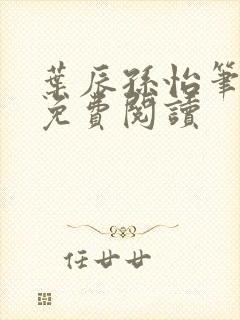 葉辰孫怡筆
免費閱讀
任廿廿